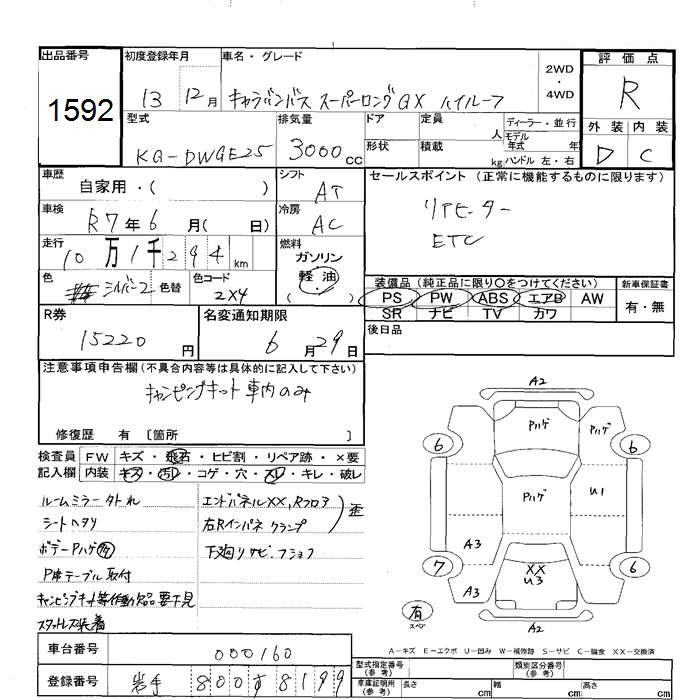 出品番号 初度登録年月 車名・グレード 2WD・4WD 評価点
1592 13 12月 キャラバンバス スーパーロングGX ハイルーフ R
型式 排気量 ドア 定員 人 ディーラー・並行 外装 内装
KG-DWGE25 3000cc 形状 積載 kg モデル年式 年 ハンドル 左・右 D C
車歴 自家用・( ) シフト AT セールスポイント (正常に機能するものに限ります)
車検 R7年6月( 日) 冷房 AC リアヒーター
ETC
走行 10万1千294km 燃料 ガソリン 軽油 ( )
色 シルバー2 色替 色コード 2X4
装備品 (純正品に限り○をつけてください) 新車保証書
PS PW ABS エアB AW 有・無
SR ナビ TV カワ
R券 15220円 名変通知期限 6月29日 後日品
注意事項申告欄(不具合内容等は具体的に記入して下さい)
キャンピングキット車内のみ
修復歴 有 〔箇所 〕
検査員 FW キズ・飛石・ヒビ割・リペア跡・×要
記入欄 内装 キズ・汚れ・コゲ・穴・スレ・キレ・破レ
ルームミラー外れ
シートヘタリ
ボデーPハゲ
P席テーブル取付
キャンピングキット等作動欠品要下見
スタッドレス装着
エンドパネルXX,Rフロア 歪
右Rインパネ クランプ
下廻りサビ・フショク
A2
Pハゲ Pハゲ
6 6
Pハゲ U1
A3
7 XX U3 6
A3
有 スペア
A2
A-キズ E-エクボ U-凹み W-補修跡 S-サビ C-腐食 XX-交換済
車台番号 000160
登録番号 岩手 800す8199
型式指定番号(参考) 類別区分番号(参考)
車庫証明用(参考) 長さ cm 幅 cm 高さ cm